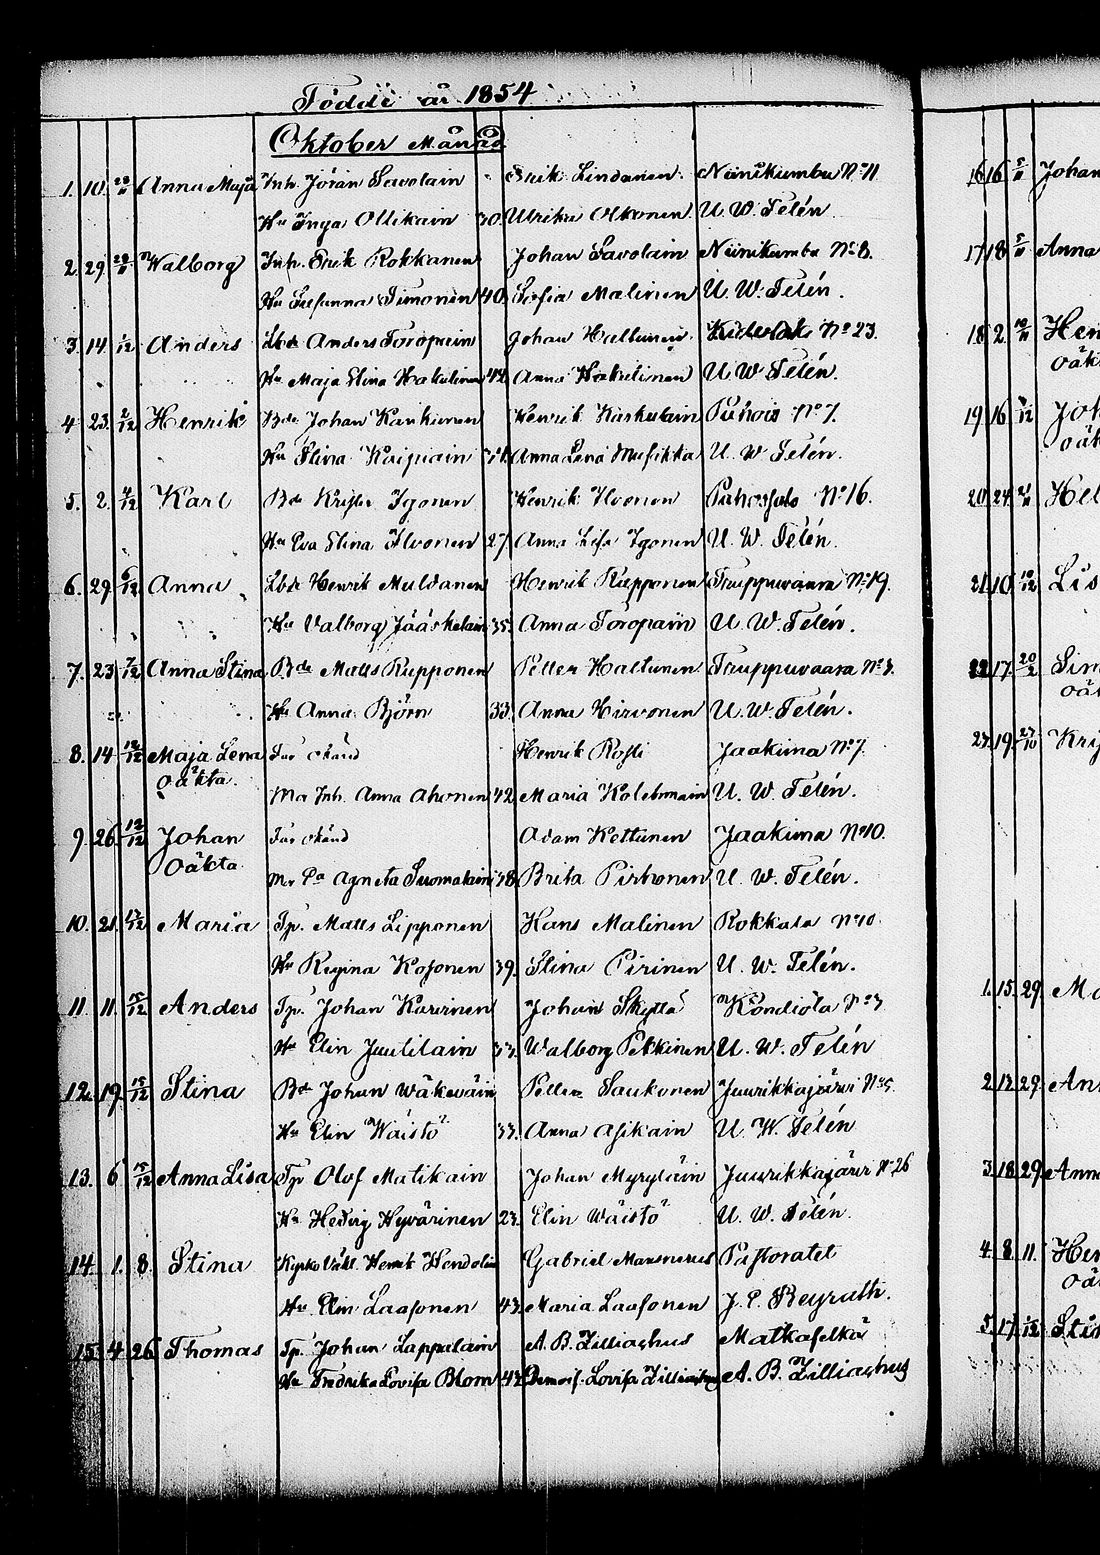 Födde år 1854
Oktober Månad
1. 10. Anna Maja Inh. Jöran Savolain Erik Lindanen Niinikumbu N:o 11
Hu Inga Ollikain 30. Ulrika Olkonen U. W. Telén
2. 29. Walborg Inh. Erik Rokkanen Johan Savolain Niinikumbu N:o 8.
Hu Susanna Simonen 40. Sofia Malinen U. W. Telén.
3. 14. 1/12 Anders Lbde Anders Toropain Johan Haltunen N:o 23.
Hu Maja Stina Hakulinen 42. Anna Hakulinen U. W Telén.
4 23. 2/12 Henrik Bde Johan Karkinen Henrik Kuskelain Puhois N:o 7.
Hu Stina Kaipiain Anna Lena Musikka U. W Telén.
5. 2. 4/12 Karl Bde Krister Igonen Henrik Ilvonen N:o 16.
Hu Eva Stina Ilvonen 27 Anna Lisa Igonen U. W. Telén.
6. 29. 6/12 Anna Lbde Henrik Muldanen Henrik Ripponen Truppuvaara N:o 19.
Hu Valborg Jääskelain 35. Anna Toropain U. W. Telén.
7. 23. 7/12 Anna Stina Bde Matts Ripponen Petter Haltunen Truppuvaara N:o 3.
Hu Anna Björn 33. Anna Hirvonen U. W. Telén.
8. 14 Maja Lena Far okänd Henrik Rossi Jaakima N:o 7.
Oäkta.
Mr Inh. Anna Ahonen 42. Maria Kolehmain U. W. Telén.
9. 26. 12/12 Johan Far okänd Adam Kettunen Jaakima N:o 10.
Oäkta
Mr Pa Agneta Suomalain 38. Brita Pirhonen U. W. Telén.
10. 21. Maria Tp. Matts Lipponen Hans Malinen Rokkala N:o 10.
Hu Regina Kosonen 39. Stina Pirinen U. W. Telén.
11. 11. 15/12 Anders Tp. Johan Karvinen Johan Skyttä Kondiola N:o 7
Hu Elin Juutilain 33. Walborg Pekkinen U. W. Telén
12. 19. 15/12 Stina Bde Johan Wäkeväin Petter Saukonen Juurikkajärvi N:o 5.
Hu Elin Waistö 33. Anna Asikain U. W. Telén
13. 6 15/12 Anna Lisa Tp Olof Matikain Johan Myryläin Juurikkajärvi N:o 26
Hu Hedvig Hyvärinen 23. Elin Wäistö U. W. Telén.
14. 1. 8. Stina Henrik Hendolin Gabriel Maxenerus Pastoratet
Hu Elin Laasonen 43. Maria Laasonen J. E. Beyrath.
15. 4. 26 Thomas Tp. Johan Lappalain A. B. Zilliachus Matkaselkä
Hu Fredrika Lovisa Blom 42. Demois. Lovisa Zilliachus A. B. Zilliachus
16 16 Johan
17. 18 Anna
18 2. Hen
oäkt
19 16 Joh
oäk
20. 24 Hel
21. 10 Lis
22. 17. Sim
oäk
23. 19. Kris
1. 15. 29. Ma
2. 12. 29. An
3. 18. 29. Anna
4. 8. 11. Hen
oä
5. 17. Stin